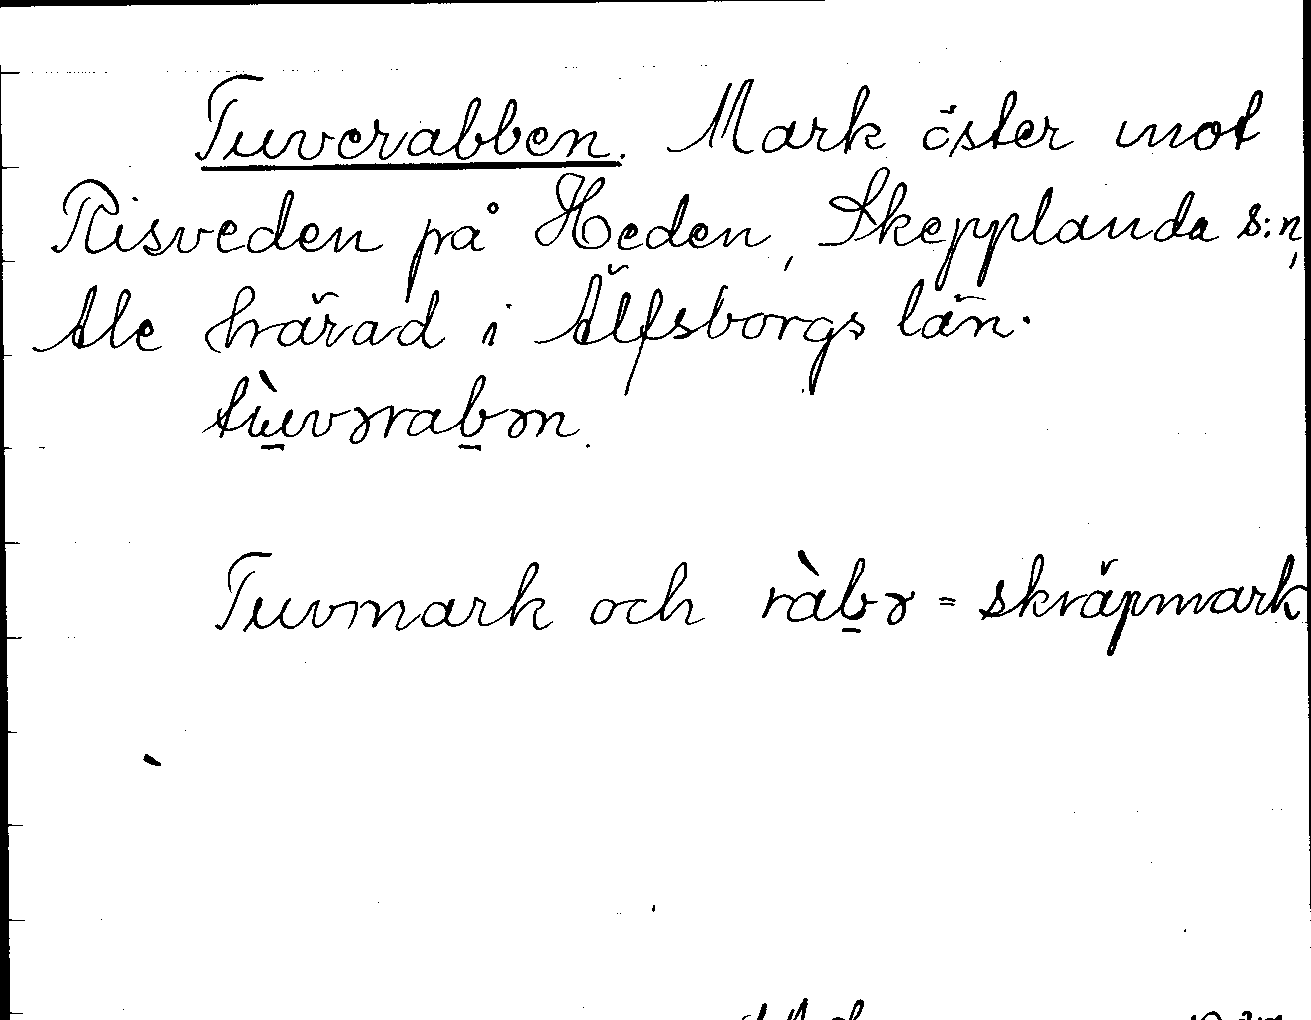 Tuverabben. Mark öster mot
Risveden på Heden, Skepplanda s:n,
Ale härad i Älfsborgs län.
tù̠vərab̠ən.
Tuvmark och ràb̠ə = skräpmark